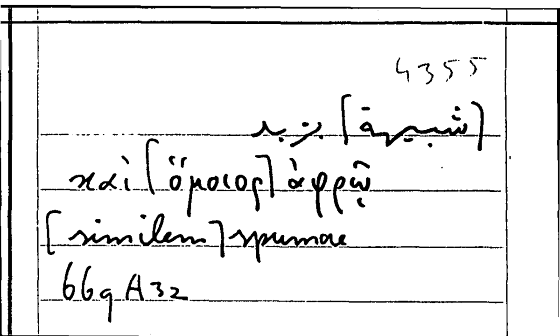 4355
[شبيهة] بزبد
καὶ [ὅμοιος] ἀφρῷ
[similem] spumae
66q A32